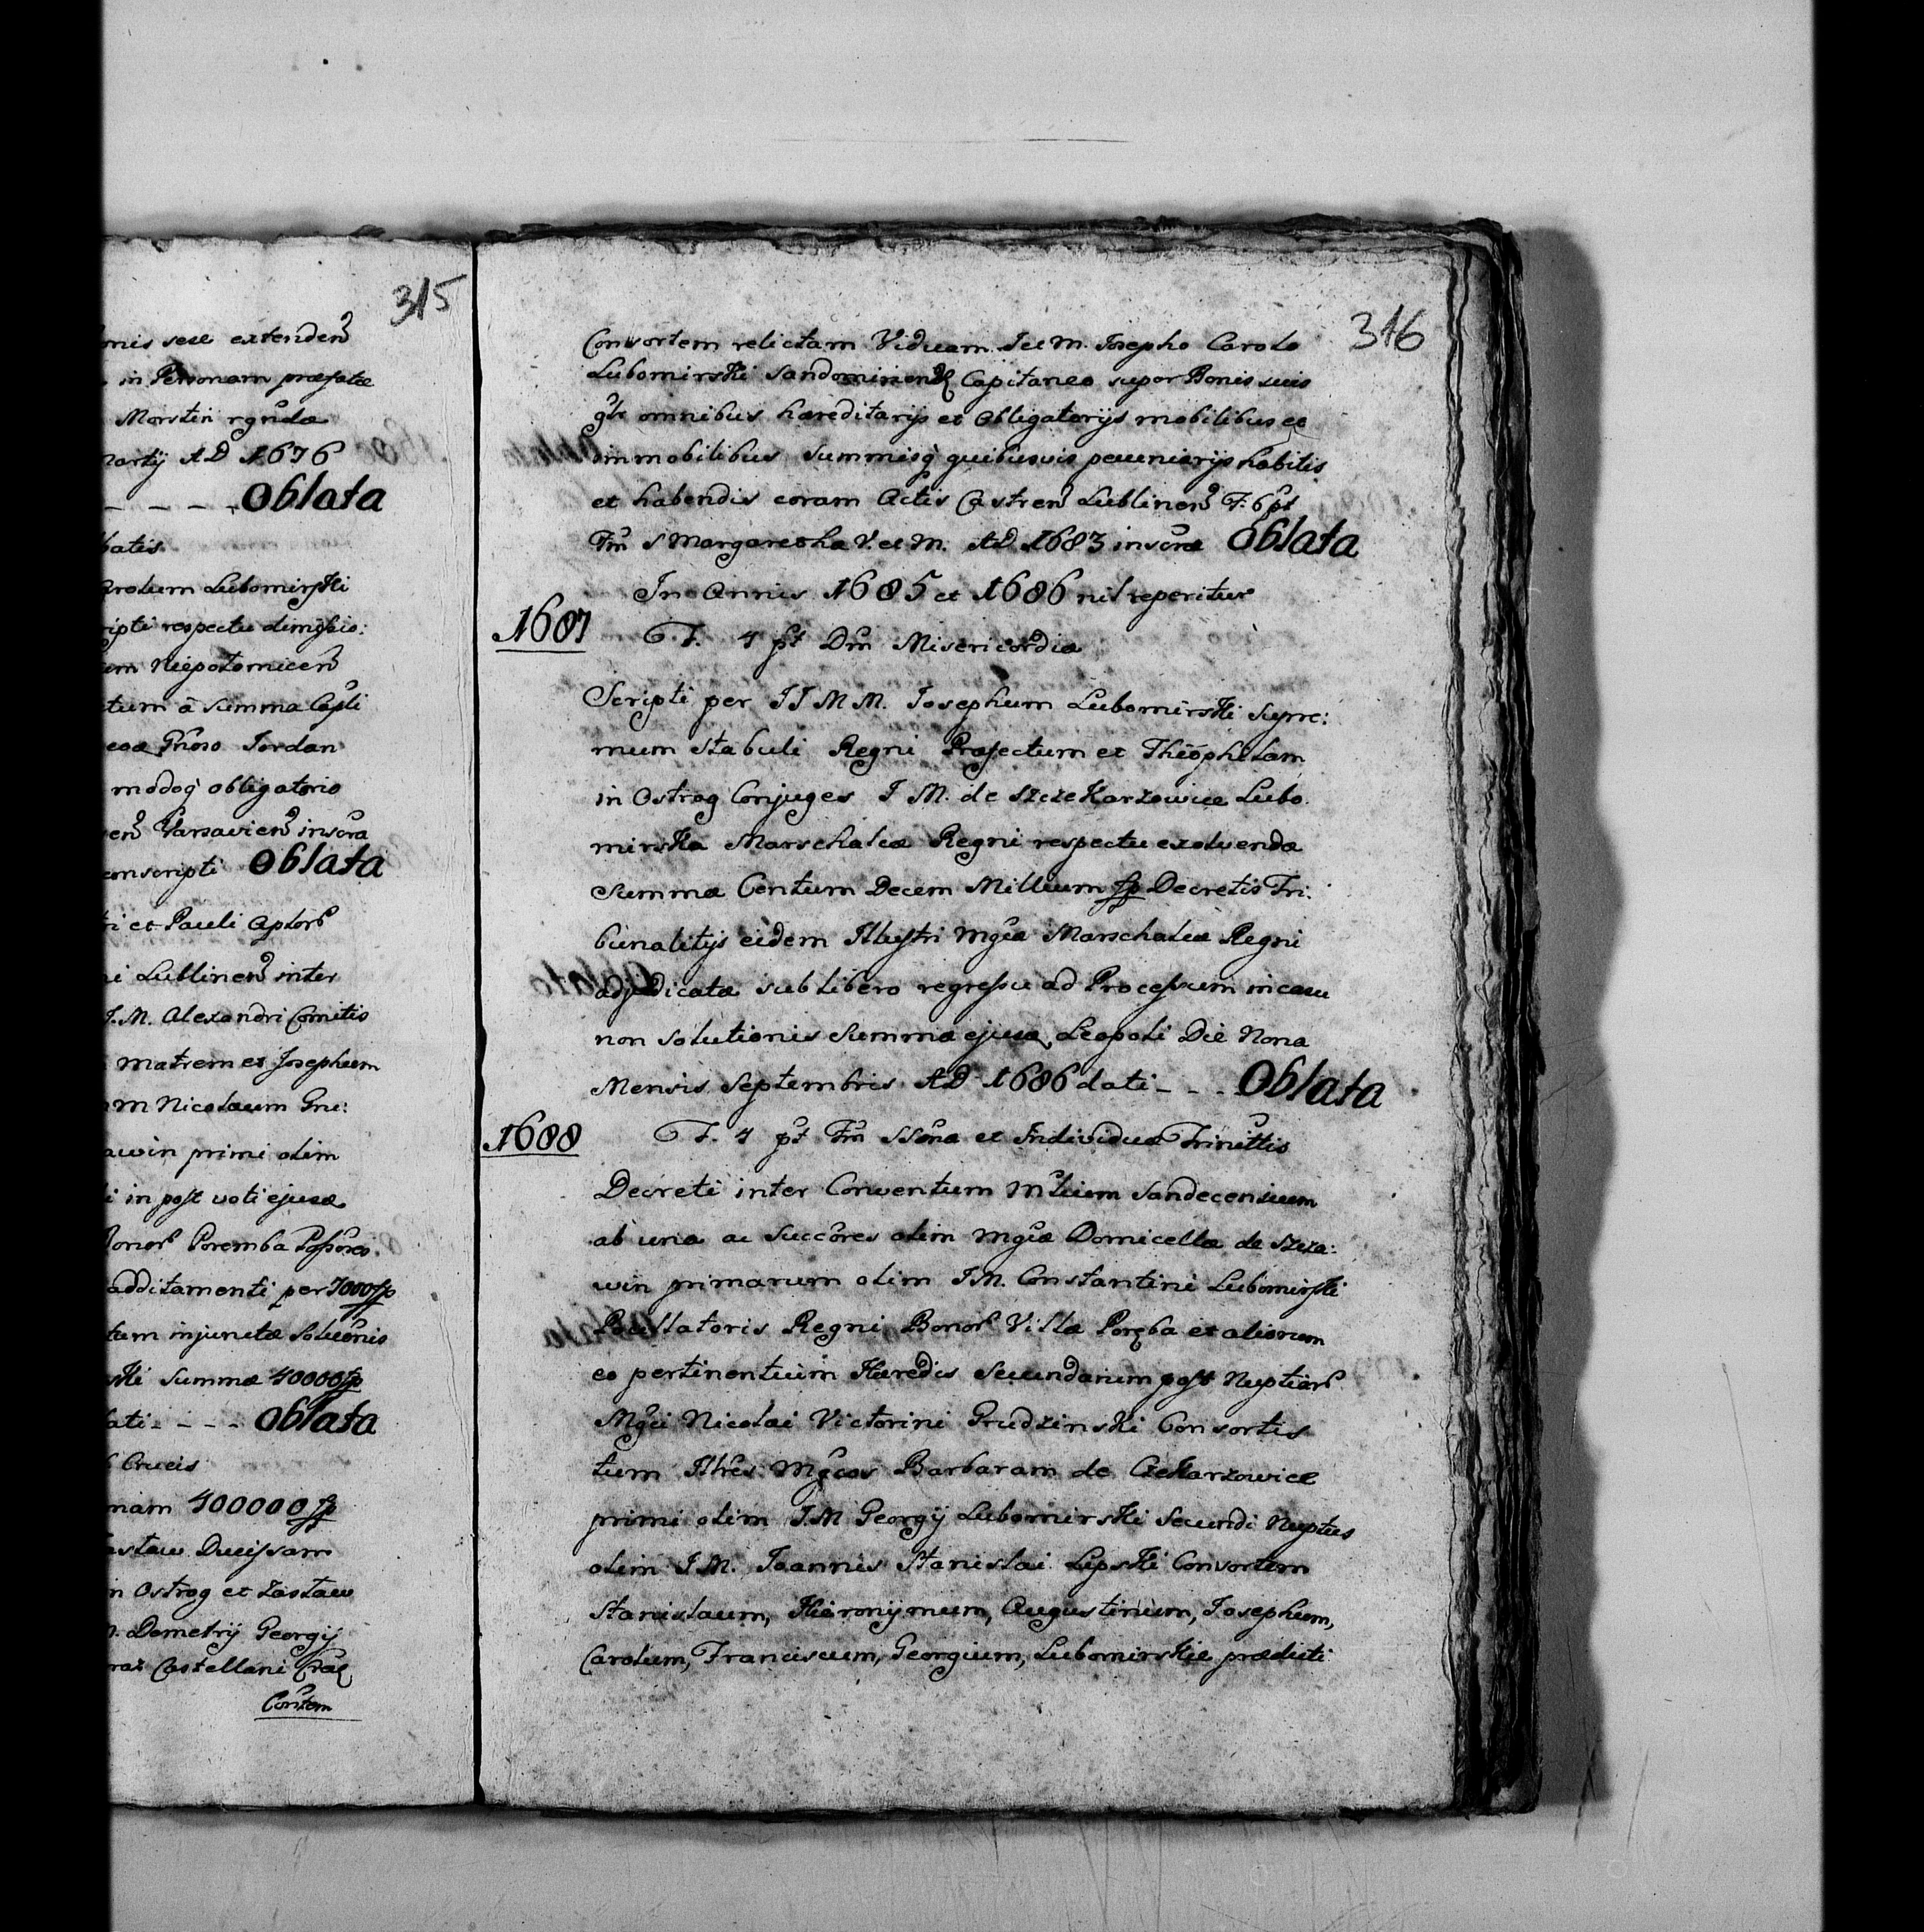 315
mis sese extenden
in Personam præfatæ
Morstin rgndæ
Martij AD 1676
Oblata
batis
arolum Lubomirski
ripti respectu dimissio:
um Niepolomicen
tum à Summa Capli
Gnoso Jordan
modoq obligatorio
en Varsavien inscra
conscripti Oblata
ri et Pauli Aptor
i Lublinen inter
J.M. Alexandri Comitis
Matrem et Josephum
m Nicolaum Gru:
awin primi olim
i in post voti ejusd
Bonor Poremba Possores
additamenti per 7000 fp
tum injunctæ Soluonis
ski Summæ 40000 fp
ati - - - Oblata
Crucis
mam 400000 fp
astaw Ducissam
n Ostrog et Zastaw
Demetrij Georgij
rat Castellani Crac
Constem
316
Consortem relictam Viduam Ill M. Josepho Carolo
Lubomirski Sandomirien Capitaneo super Bonis suis
glr omnibus hæreditarijs et Obligatorijs mobilibus et
immobilibus Summisq quibusvis pecuniarijs habitis
et habendis coram Actis Castren Lublinen F. 6 pt
Fm S Margarethæ V. et M. AD 1683 inscræ Oblata
In Annis 1685 et 1686 nil reperitur
1687 F. 4 pt Dm Misericordiæ
Scripti per JJ M M. Josephum Lubomirski Supre:
mum Stabuli Regni Præfectum et Theophilam
in Ostrog Conjuges J M. de Szczekarzowice Lubo
mirska Marschalcæ Regni respectu exolvendæ
Summæ Centum Decem Millium fp Decretis Tri:
bunalitijs eidem Illustri Mgcæ Marschalcæ Regni
adjudicatæ sub libero regressu ad Processum in casu
non Solutionis Summæ ejusd Leopoli Die Nona
Mensis Septembris AD 1686 dati - - - Oblata
1688 F. 4 pt Fm SSmæ et Individuæ Trinittis
Decreti inter Conventum Mlium Sandecensium
ab una ac Succores olim Mgcæ Domicellæ de Szcza:
win primarum olim J M. Constantini Lubomirski
Pocillatoris Regni Bonor Villæ Poręba et aliorum
eo pertinentium Hæredis Secundarum post Nuptiar
Mgci Nicolai Victorini Grudzinski Consortis
tum Illres Mgcos Barbaram de Czekarzowice
primi olim J.M Georgij Lubomirski Secundi Nuptus
olim J M. Joannis Stanislai Lipski Consortem
Stanislaum, Hieronymum, Augustinum, Josephum,
Carolum, Franciscum, Georgium, Lubomirskie prædicti